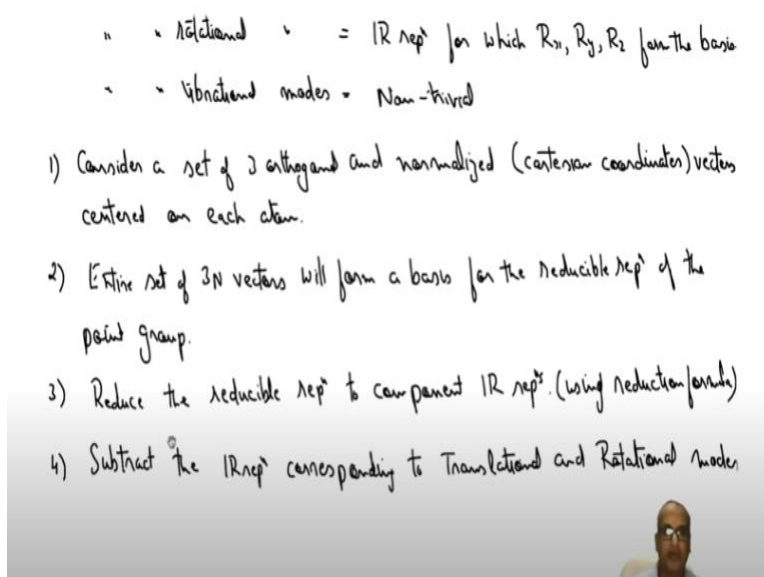 " " rotational " = IR repⁿ for which Rx, Ry, Rz form the basis
" " vibrational modes = Non-trivial
1) Consider a set of 3 orthogonal and normalized (cartesian coordinates) vectors
centered on each atom.
2) Entire set of 3N vectors will form a basis for the reducible repⁿ of the
point group.
3) Reduce the reducible repⁿ to component IR repⁿs. (using reduction formula)
4) Subtract the IR repⁿ corresponding to Translational and Rotational modes